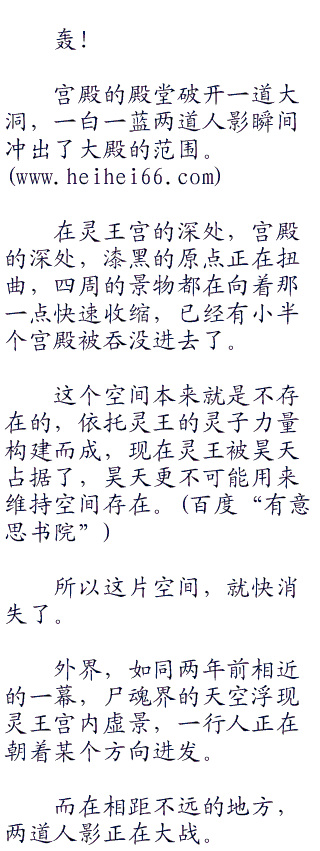 轰！
宫殿的殿堂破开一道大
洞，一白一蓝两道人影瞬间
冲出了大殿的范围。
(www.heihei66.com)
在灵王宫的深处，宫殿
的深处，漆黑的原点正在扭
曲，四周的景物都在向着那
一点快速收缩，已经有小半
个宫殿被吞没进去了。
这个空间本来就是不存
在的，依托灵王的灵子力量
构建而成，现在灵王被昊天
占据了，昊天更不可能用来
维持空间存在。(百度“有意
思书院”)
所以这片空间，就快消
失了。
外界，如同两年前相近
的一幕，尸魂界的天空浮现
灵王宫内虚景，一行人正在
朝着某个方向进发。
而在相距不远的地方，
两道人影正在大战。